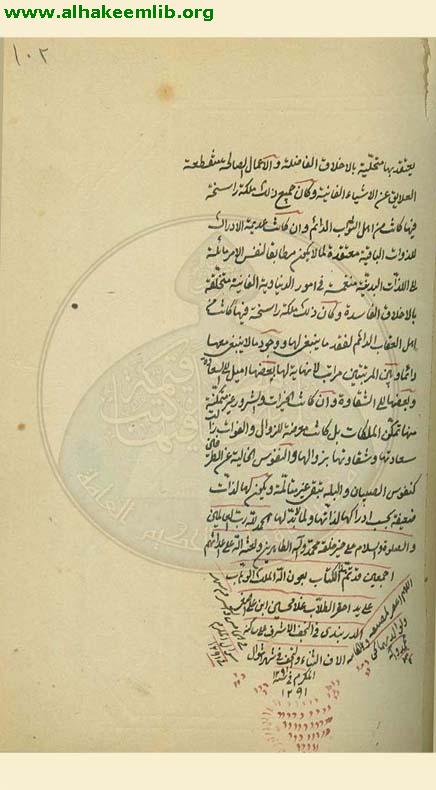 www.alhakeemlib.org
١٠٢
يعتقد بها متحلية بالاخلاق الفاضلة والاعمال الصالحة منقطعة
العلايق عن الاشياء الفانية وكان جميع ذلك ملكة راسخة
فيها كانت من اهل الثواب الدائم وان كانت عديمة الادراك
للذوات الباقية معتقدة لما لا يكون مطابقا لنفس الامر مائلة
الى اللذات البدنية منغمسة في امور الدنياوية الفانية متخلقة
بالاخلاق الفاسدة وكان ذلك ملكة راسخة فيها كانت من
اهل العقاب الدائم لفقد ما ينبغي لها ووجود ما لا ينبغي معها
دائما وبين المرتبتين مراتب لا نهاية لها بعضها اميل الى السعادة
وبعضها الى الشقاوة وان كانت الخيرات والشرور غير متمكنة
منها تمكن الملكات بل كانت معرضة للزوال
سعادتها وشقاوتها بزوالها والنفوس الخالية عن الطرفين
كنفوس الصبيان والبله تبقى غير متألمة ويكون لها لذات
ضعيفة بحسب ادراكها لذاتها ولما لابد لها الحمد لله رب العالمين
والصلوة والسلام على خير خلقه محمد وآله الطاهرين ولعنة الله على اعدائهم
اجمعين قد تم الكتاب بعون الله الملك الوهاب
على يد احقر الطلاب غلامحسين ابن علي اصغر
الدربندي في النجف الاشرف على ساكنه
الاف الثناء والتحف في شهر شوال
المكرم في سنة
١٢٩١
اللهم اغفر لمصنفه
ولوالديهما